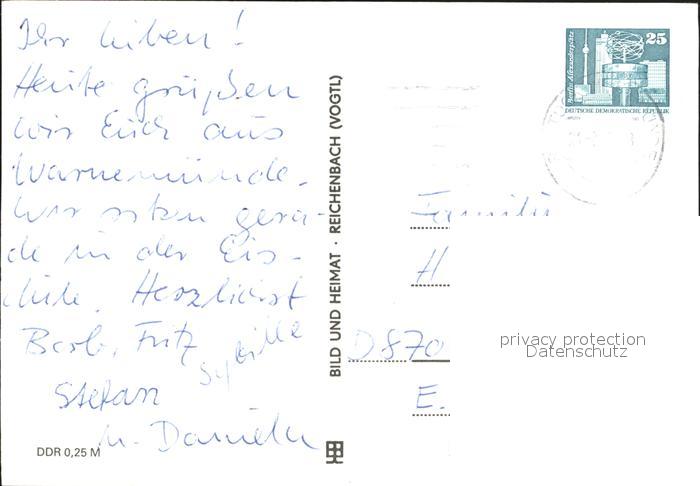 Ihr lieben!
Heute grüßen
wir Euch aus
Warnemünde.
Wir sitzen gera-
de in der Eis-
diele. Herzlichst
Barb, Fritz
Sybille
Stefan
u. Daniela
DDR 0,25 M
BILD UND HEIMAT · REICHENBACH (VOGTL)
25
Berlin, Alexanderplatz
DEUTSCHE DEMOKRATISCHE REPUBLIK
Familie
H
D 870
E.
privacy protection
Datenschutz